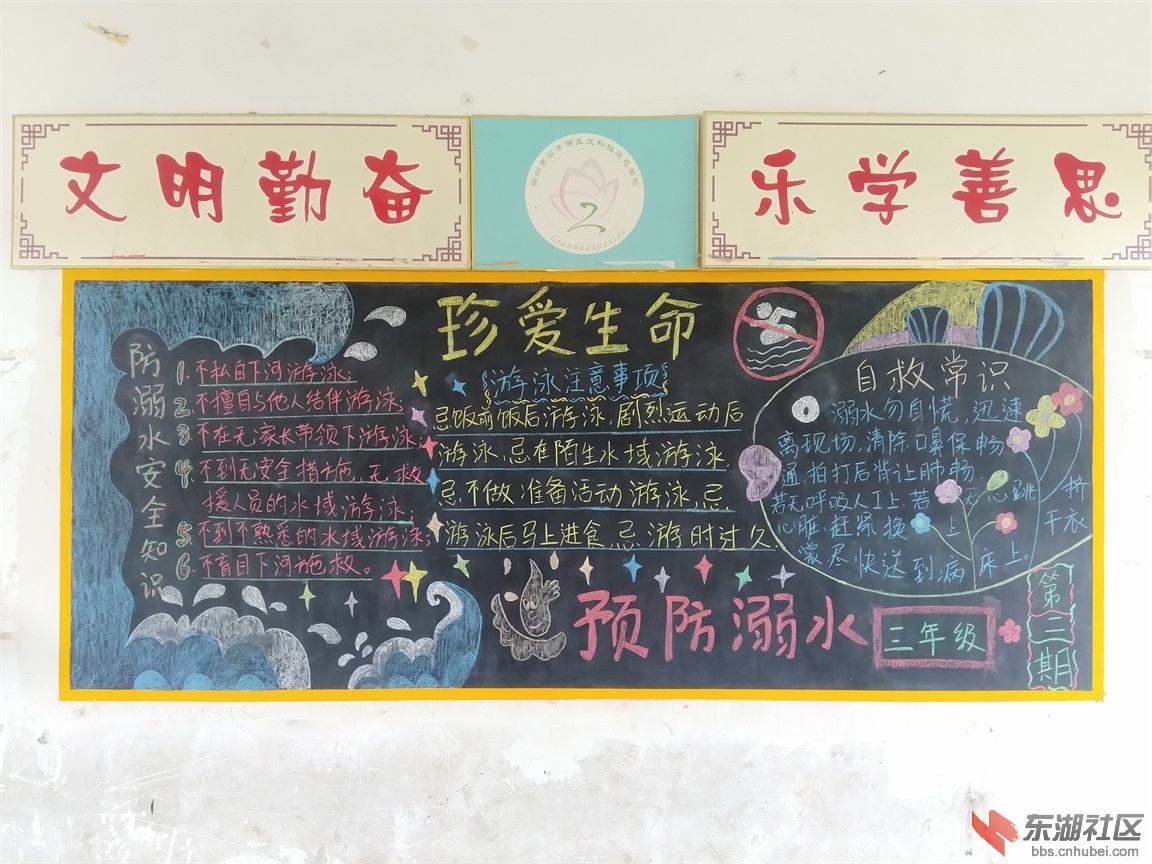 文明勤奋
鄂州市梁子湖区太和镇莲花学校
2
Lianhuaxuexiao
乐学善思
珍爱生命
防溺水安全知识
1.不私自下河游泳;
2.不擅自与他人结伴游泳;
3.不在无家长带领下游泳;
4.不到无安全措施,无救
援人员的水域游泳;
5.不到不熟悉的水域游泳;
6.不盲目下河施救。
游泳注意事项
忌饭前饭后游泳,剧烈运动后
游泳,忌在陌生水域游泳,
忌不做准备活动游泳,忌
游泳后马上进食,忌游时过久
自救常识
溺水勿自慌,迅速
离现场,清除口鼻保畅
通,拍打后背让肺畅,
若无呼吸人工上,若无心跳挤
心脏,赶紧换上干衣
裳尽快送到病床上。
预防溺水
三年级
第二期
东湖社区
bbs.cnhubei.com